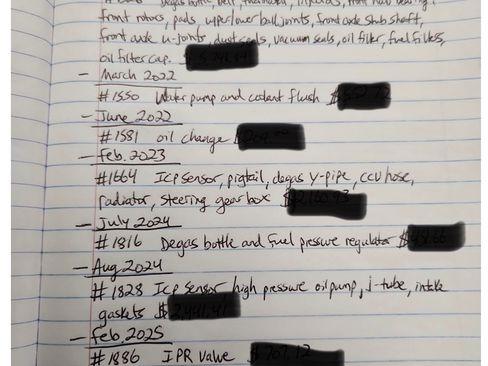 Degas bottle, belt, thermostat, injectors, front hub bearing,
front rotors, pads, upper/lower ball joints, front axle stub shaft,
front axle u-joints, dust seals, vacuum seals, oil filter, fuel filters,
oil filter cap.
- March 2022
#1550 Water pump and coolant flush $
- June 2022
#1581 oil change $
- Feb. 2023
#1664 ICP sensor, pigtail, degas y-pipe, ccv hose,
radiator, steering gear box $
- July 2024
#1816 Degas bottle and fuel pressure regulator $
- Aug 2024
#1828 ICP sensor, high pressure oil pump, j-tube, intake
gaskets $
- Feb. 2025
#1886 IPR valve $